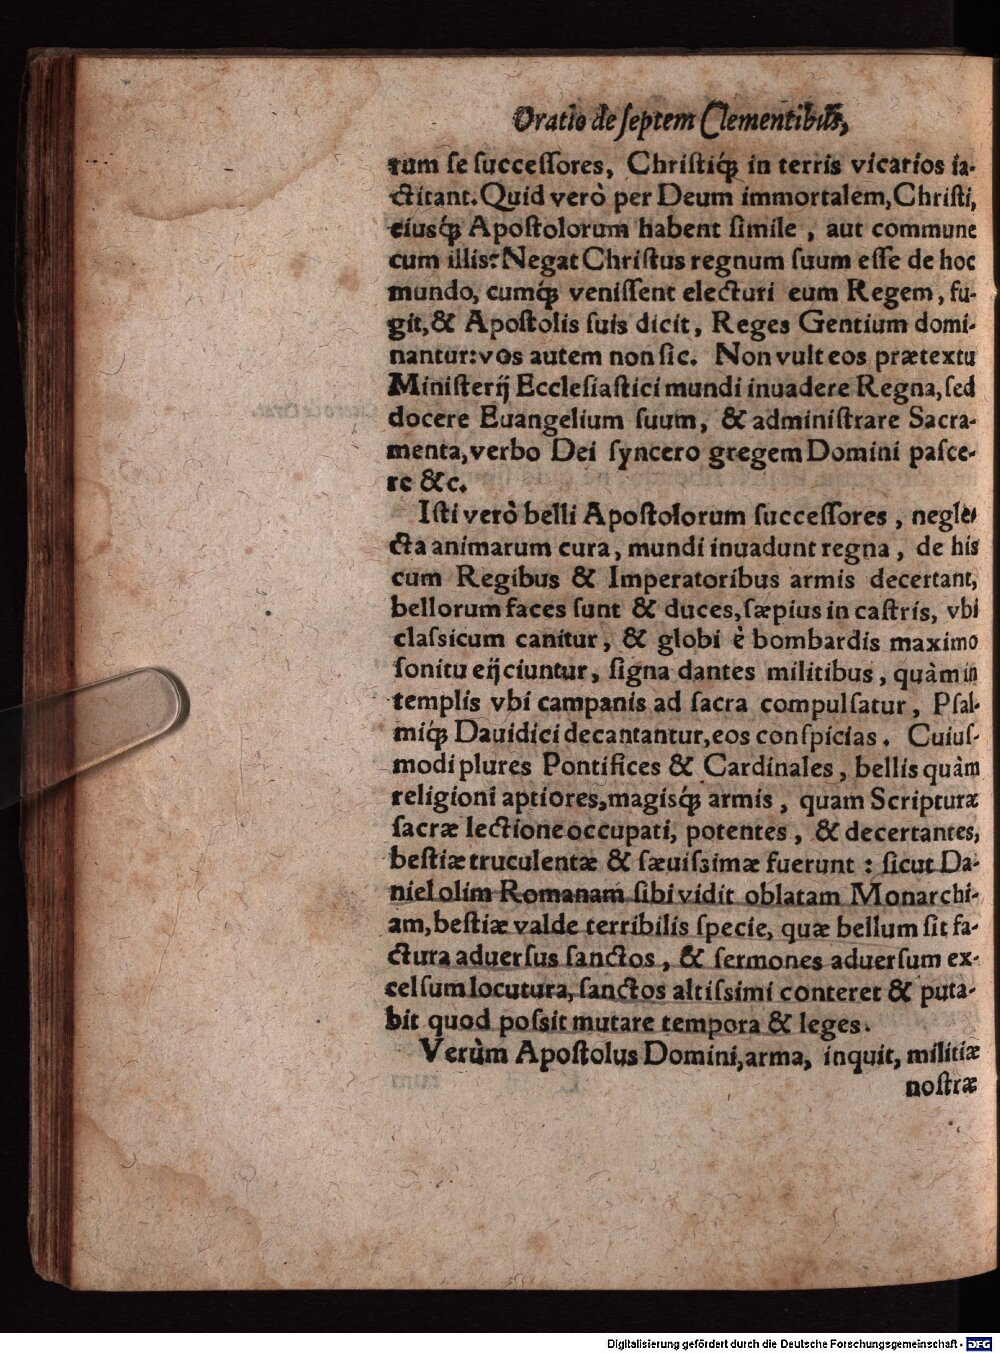 Oratio de ſeptem Clementibus,
rum ſe ſucceſſores, Chriſtiq́; in terris vicarios ia-
ctitant. Quid verò per Deum immortalem, Chriſti,
eiusq́; Apoſtolorum habent ſimile, aut commune
cum illis? Negat Chriſtus regnum ſuum eſſe de hoc
mundo, cumq́; veniſſent electuri eum Regem, fu-
git, & Apoſtolis ſuis dicit, Reges Gentium domi-
nantur: vos autem non ſic. Non vult eos prætextu
Miniſterij Eccleſiaſtici mundi inuadere Regna, ſed
docere Euangelium ſuum, & adminiſtrare Sacra-
menta, verbo Dei ſyncero gregem Domini paſce-
re &c.
Iſti verò belli Apoſtolorum ſucceſſores, negle-
cta animarum cura, mundi inuadunt regna, de his
cum Regibus & Imperatoribus armis decertant,
bellorum faces ſunt & duces, ſæpius in caſtris, vbi
claſsicum canitur, & globi è bombardis maximo
ſonitu eijciuntur, ſigna dantes militibus, quàm in
templis vbi campanis ad ſacra compulſatur, Pſal-
miq́; Dauidici decantantur, eos conſpicias. Cuiuſ-
modi plures Pontifices & Cardinales, bellis quàm
religioni aptiores, magisq́; armis, quam Scripturæ
ſacræ lectione occupati, potentes, & decertantes,
beſtiæ truculentæ & ſæuiſsimæ fuerunt: ſicut Da-
niel olim Romanam ſibi vidit oblatam Monarchi-
am, beſtiæ valde terribilis ſpecie, quæ bellum ſit fa-
ctura aduerſus ſanctos, & ſermones aduerſum ex-
celſum locutura, ſanctos altiſsimi conteret & puta-
bit quod poſsit mutare tempora & leges.
Verùm Apoſtolus Domini, arma, inquit, militiæ
noſtræ
Digitalisierung gefördert durch die Deutsche Forschungsgemeinschaft - DFG